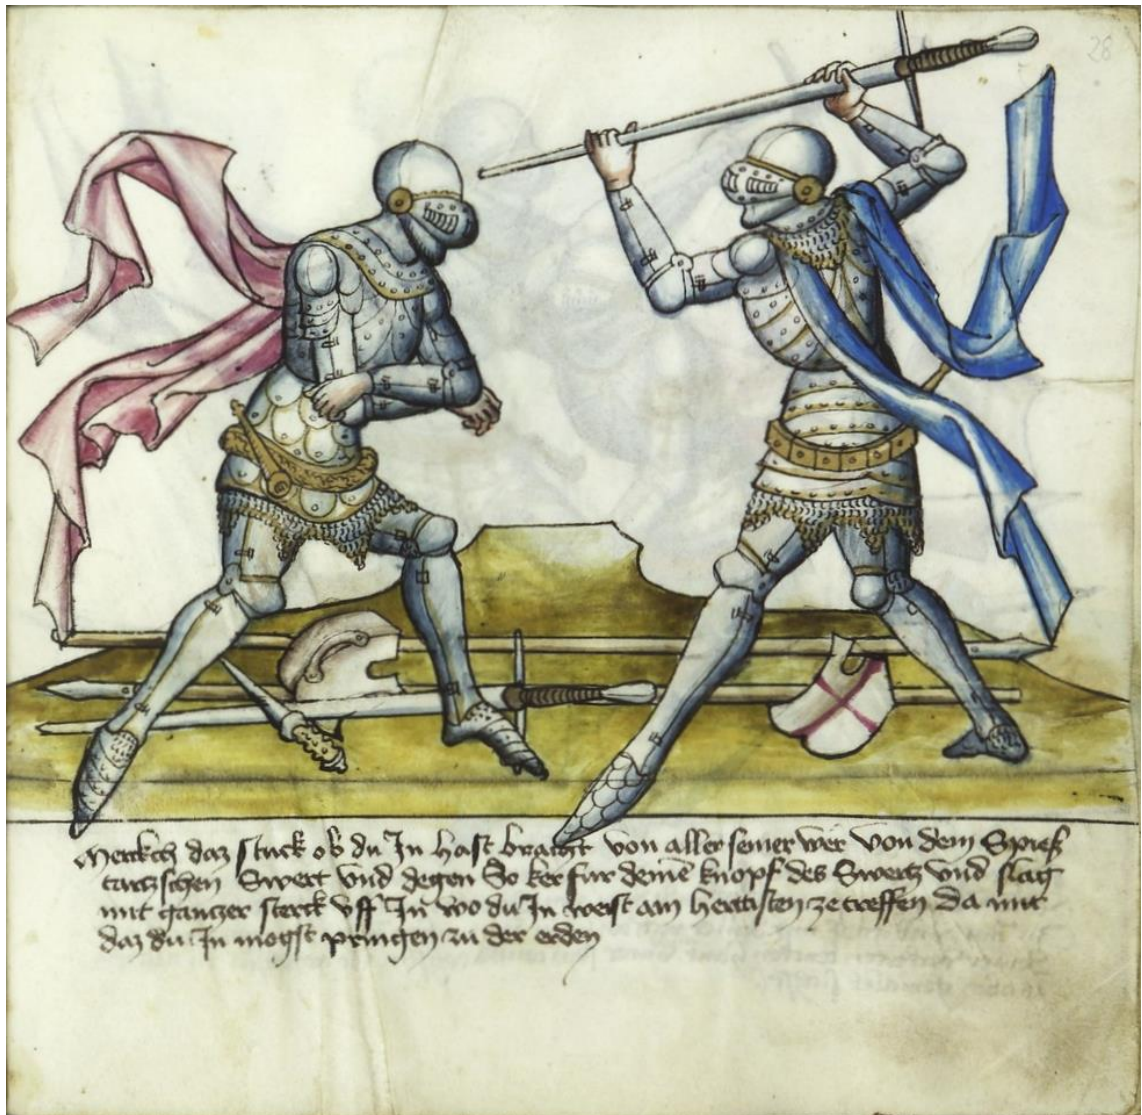 28
Merckch daz stuck ob du In hast bracht von aller seiner wer von dem Spieß
tartzschen Swert vnd degen So ker fur deinē knopf des Swertz vnd slag
mit gantzer sterck vff In wo du In weist am hertisten ze treffen Da mit
daz du In mogst pringen zu der erden